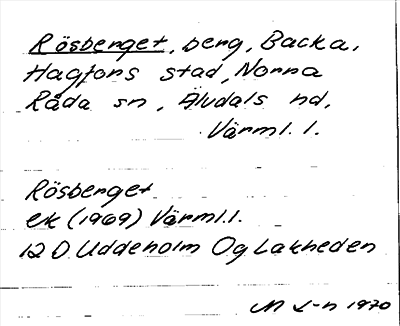 Rösberget, berg, Backa,
Hagfors stad, Norra
Råda sn, Älvdals hd,
Värml. l.
Rösberget
ek (1969) Värml. l.
12 D Uddeholm Og Lakheden
1970